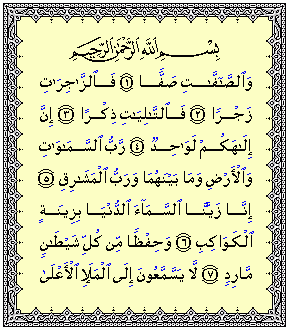 بِسْمِ اللَّهِ الرَّحْمَٰنِ الرَّحِيمِ
وَالصَّٰٓفَّٰتِ صَفًّا ١ فَالزَّٰجِرَٰتِ
زَجْرًا ٢ فَالتَّٰلِيَٰتِ ذِكْرًا ٣ إِنَّ
إِلَٰهَكُمْ لَوَٰحِدٌ ٤ رَّبُّ السَّمَٰوَٰتِ
وَالْأَرْضِ وَمَا بَيْنَهُمَا وَرَبُّ الْمَشَٰرِقِ ٥
إِنَّا زَيَّنَّا السَّمَآءَ الدُّنْيَا بِزِينَةٍ
الْكَوَاكِبِ ٦ وَحِفْظًا مِّن كُلِّ شَيْطَٰنٍ
مَّارِدٍ ٧ لَّا يَسَّمَّعُونَ إِلَى الْمَلَإِ الْأَعْلَىٰ